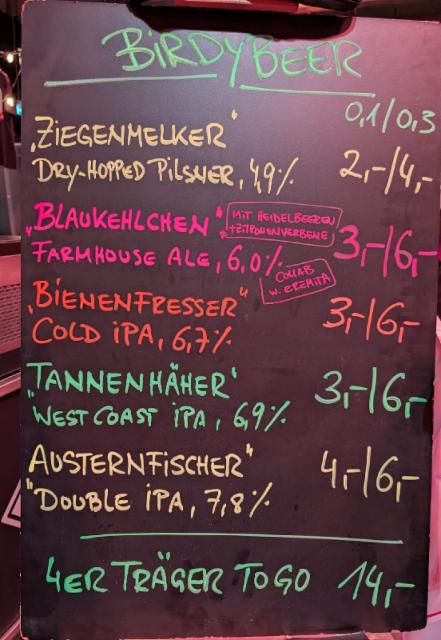 BIRDYBEER
0,1/0,3
„ZIEGENMELKER“
DRY-HOPPED PILSNER, 4,9% 2,-/4,-
„BLAUKEHLCHEN“ * MIT HEIDELBEEREN
+ZITRONENVERBENE
FARMHOUSE ALE, 6,0% 3,-/6,-
COLLAB
W. EREMITA
„BIENENFRESSER“
COLD IPA, 6,7% 3,-/6,-
„TANNENHÄHER“
WEST COAST IPA, 6,9% 3,-/6,-
„AUSTERNFISCHER“
DOUBLE IPA, 7,8% 4,-/6,-
4ER TRÄGER TO GO 14,-